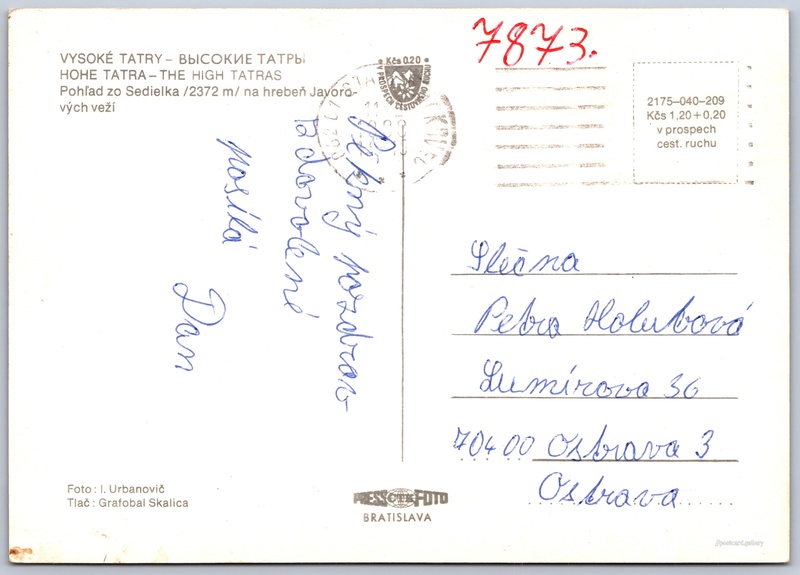 7873.
VYSOKÉ TATRY – ВЫСОКИЕ ТАТРЫ
HOHE TATRA – THE HIGH TATRAS
Pohľad zo Sedielka /2372 m/ na hrebeň Javoro-
vých veží
Kčs 0.20
V PROSPECH CESTOVNÉHO RUCHU
2175–040–209
Kčs 1,20 + 0,20
v prospech
cest. ruchu
Pěkný pozdrav
z dovolené
posílá
Dan
Slečna
Petra Holubová
Lumírova 36
70400 Ostrava 3
Ostrava
Foto: I. Urbanovič
Tlač: Grafobal Skalica
PRESS ČTK FOTO
BRATISLAVA